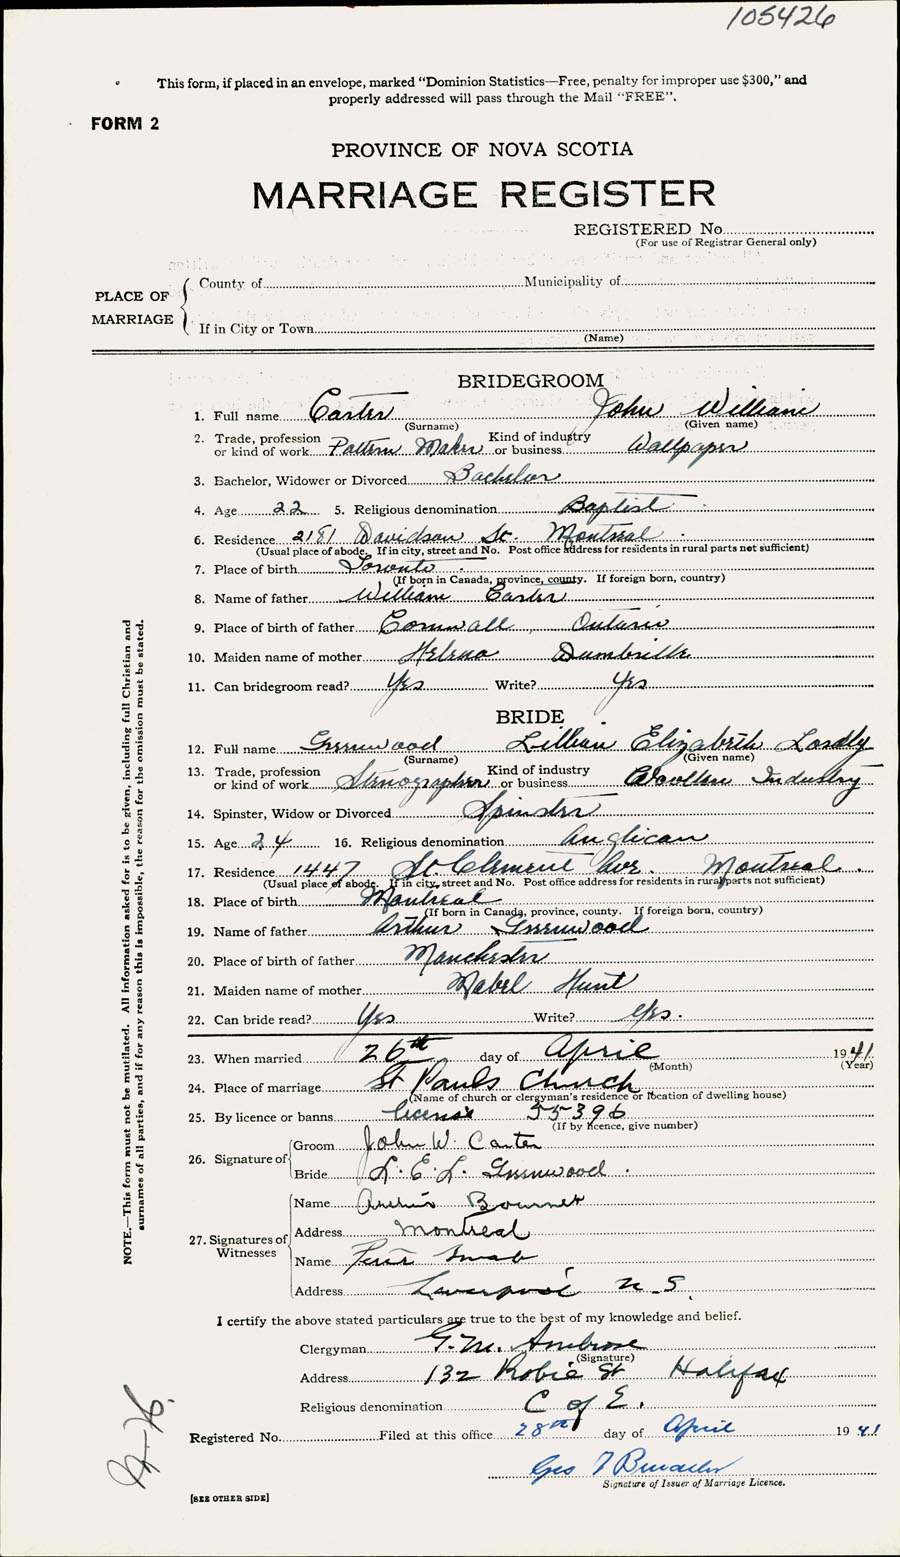 105426
This form, if placed in an envelope, marked "Dominion Statistics—Free, penalty for improper use $300," and
properly addressed will pass through the Mail "FREE".
FORM 2
PROVINCE OF NOVA SCOTIA
MARRIAGE REGISTER
REGISTERED No.
(For use of Registrar General only)
PLACE OF MARRIAGE
County of Municipality of
If in City or Town
(Name)
BRIDEGROOM
1. Full name Carter John William
(Surname) (Given name)
2. Trade, profession or kind of work Pattern Maker Kind of industry or business Wallpaper
3. Bachelor, Widower or Divorced Bachelor
4. Age 22 5. Religious denomination Baptist
6. Residence 2181 Davidson St. Montreal
(Usual place of abode. If in city, street and No. Post office address for residents in rural parts not sufficient)
7. Place of birth Toronto
(If born in Canada, province, county. If foreign born, country)
8. Name of father William Carter
9. Place of birth of father Cornwall, Ontario
10. Maiden name of mother Helena Dumbrille
11. Can bridegroom read? Yes Write? Yes
BRIDE
12. Full name Greenwood Lillian Elizabeth Lordly
(Surname) (Given name)
13. Trade, profession or kind of work Stenographer Kind of industry or business Woollen Industry
14. Spinster, Widow or Divorced Spinster
15. Age 24 16. Religious denomination Anglican
17. Residence 1447 St. Clement Ave. Montreal.
(Usual place of abode. If in city, street and No. Post office address for residents in rural parts not sufficient)
18. Place of birth Montreal
(If born in Canada, province, county. If foreign born, country)
19. Name of father Arthur Greenwood
20. Place of birth of father Manchester
21. Maiden name of mother Mabel Hunt
22. Can bride read? Yes Write? Yes.
23. When married 26th day of April 1941
(Month) (Year)
24. Place of marriage St Pauls Church
(Name of church or clergyman's residence or location of dwelling house)
25. By licence or banns license 55396
(If by licence, give number)
26. Signature of
Groom John W. Carter
Bride L. E. L. Greenwood.
27. Signatures of Witnesses
Name
Address Montreal
Name
Address Liverpool N.S.
I certify the above stated particulars are true to the best of my knowledge and belief.
Clergyman G. M. Ambrose
(Signature)
Address 132 Robie St Halifax
Religious denomination C of E.
Registered No. Filed at this office 28th day of April 1941
Geo
Signature of Issuer of Marriage Licence.
[SEE OTHER SIDE]
NOTE.—This form must not be mutilated. All information asked for is to be given, including full Christian and
surnames of all parties, and if for any reason this is impossible, the reason for the omission must be stated.